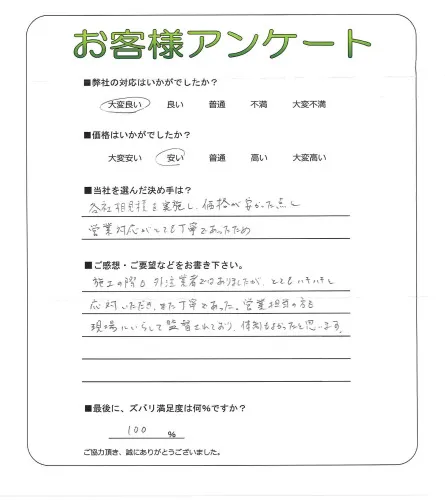 お客様アンケート
■弊社の対応はいかがでしたか?
大変良い 良い 普通 不満 大変不満
■価格はいかがでしたか?
大変安い 安い 普通 高い 大変高い
■当社を選んだ決め手は?
各社相見積を実施し、価格が安かった点と
営業対応がとても丁寧であったため
■ご感想・ご要望などをお書き下さい。
施工の際も外注業者ではありましたが、とてもハキハキと
応対いただき、また丁寧であった。営業担当の方も
現場にいらして監督されており、体制もよかったと思います。
■最後に、ズバリ満足度は何%ですか?
100 %
ご協力頂き、誠にありがとうございました。